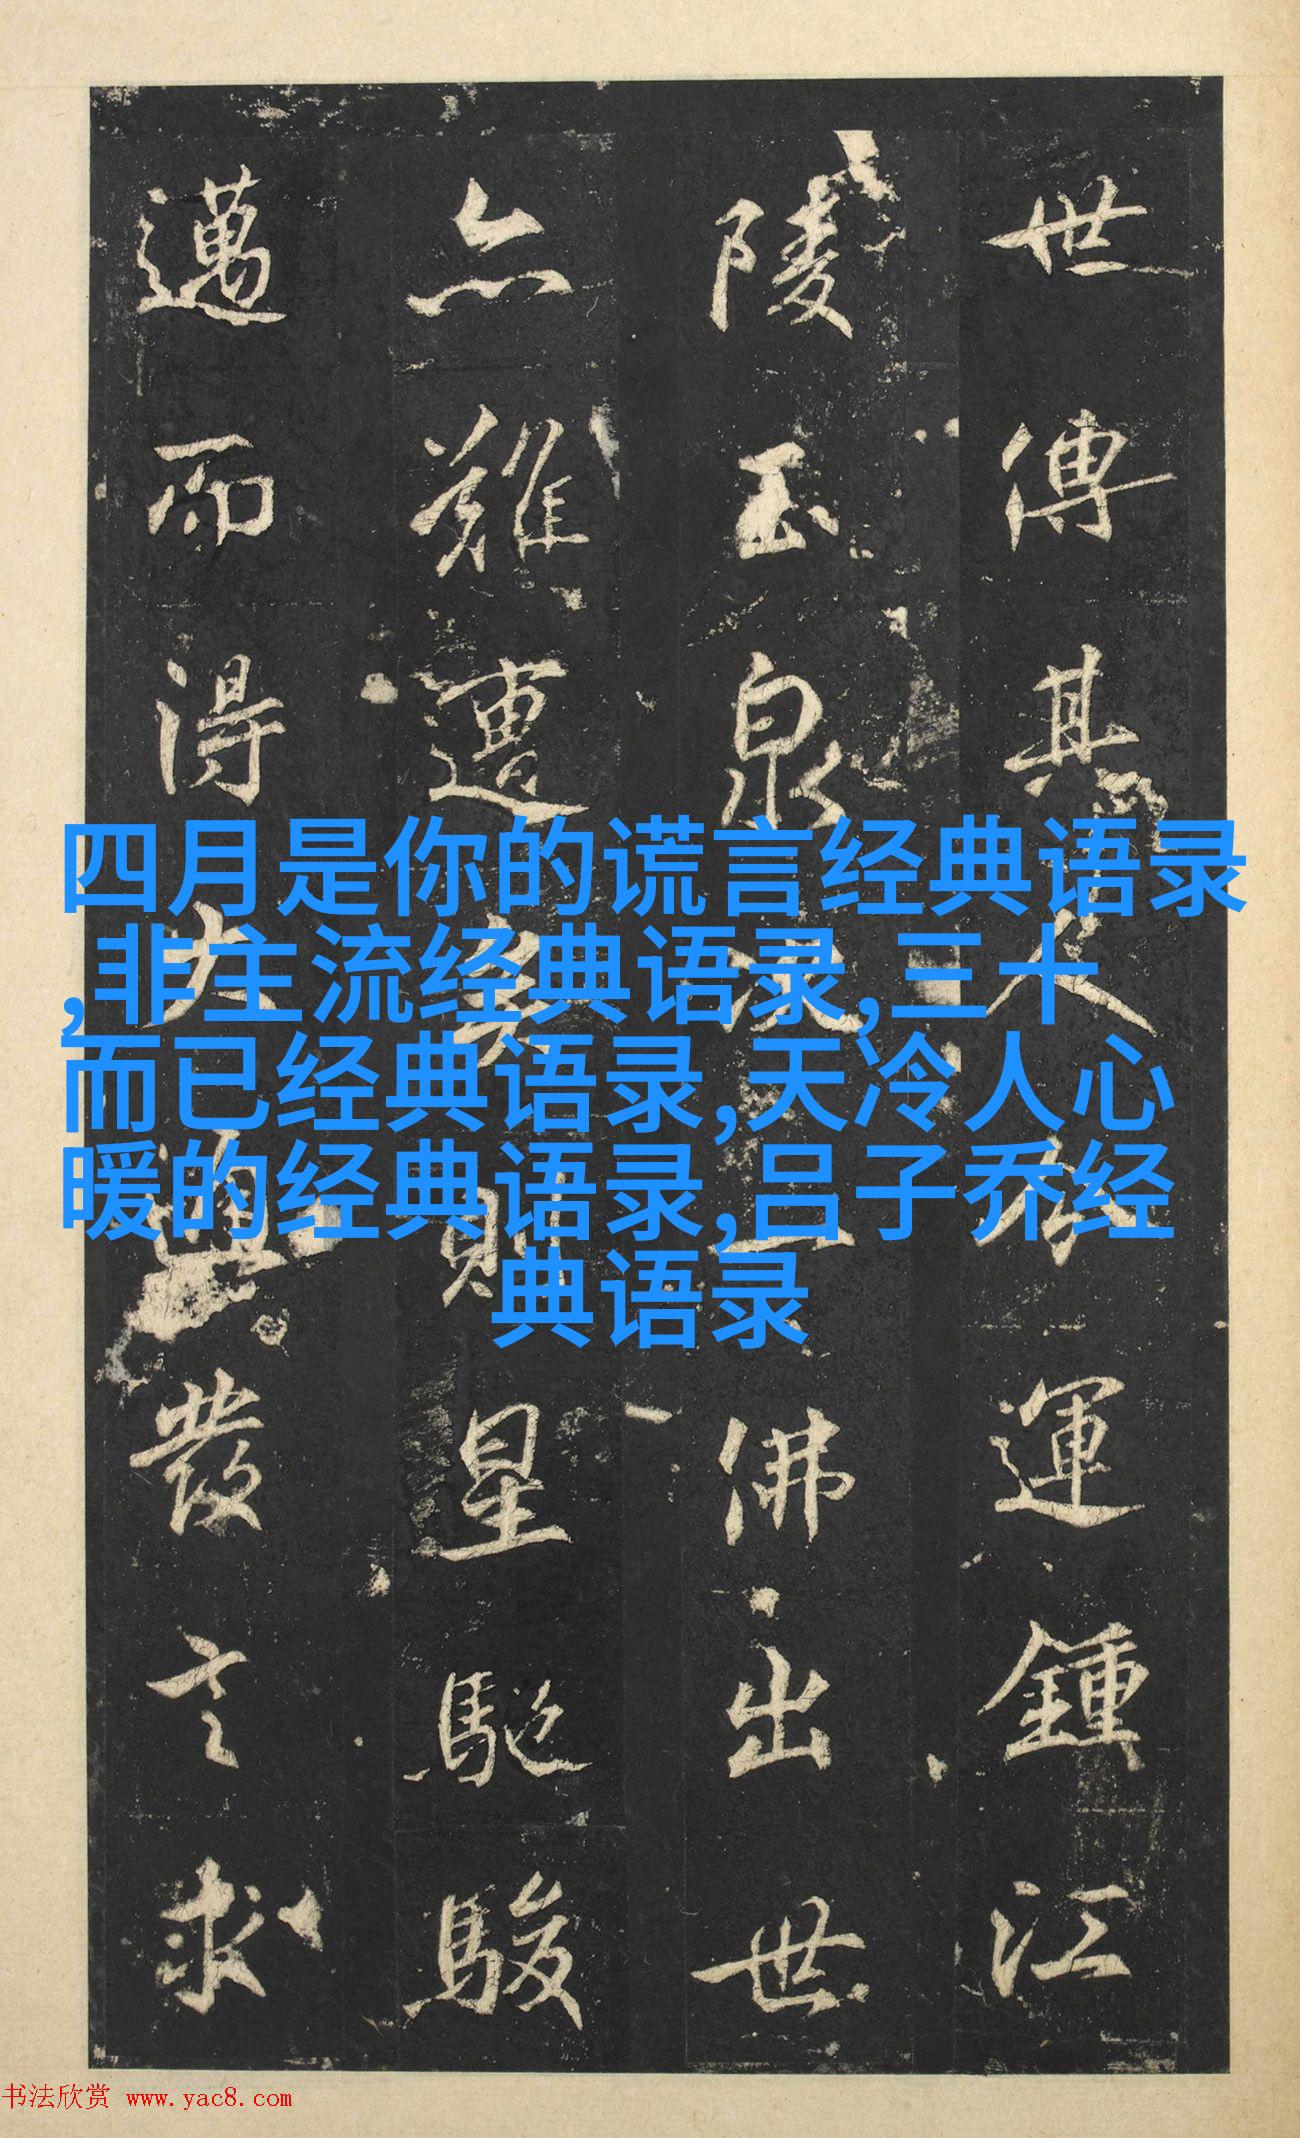 世傳其人運鍾江
陵玉泉一佛出世
亦難遭矣則星馳駿
邁而得大發言求
四月是你的谎言经典语录
,非主流经典语录,三十
而已经典语录,天冷人心
暖的经典语录,吕子乔经
典语录
书法欣赏 www.yac8.com